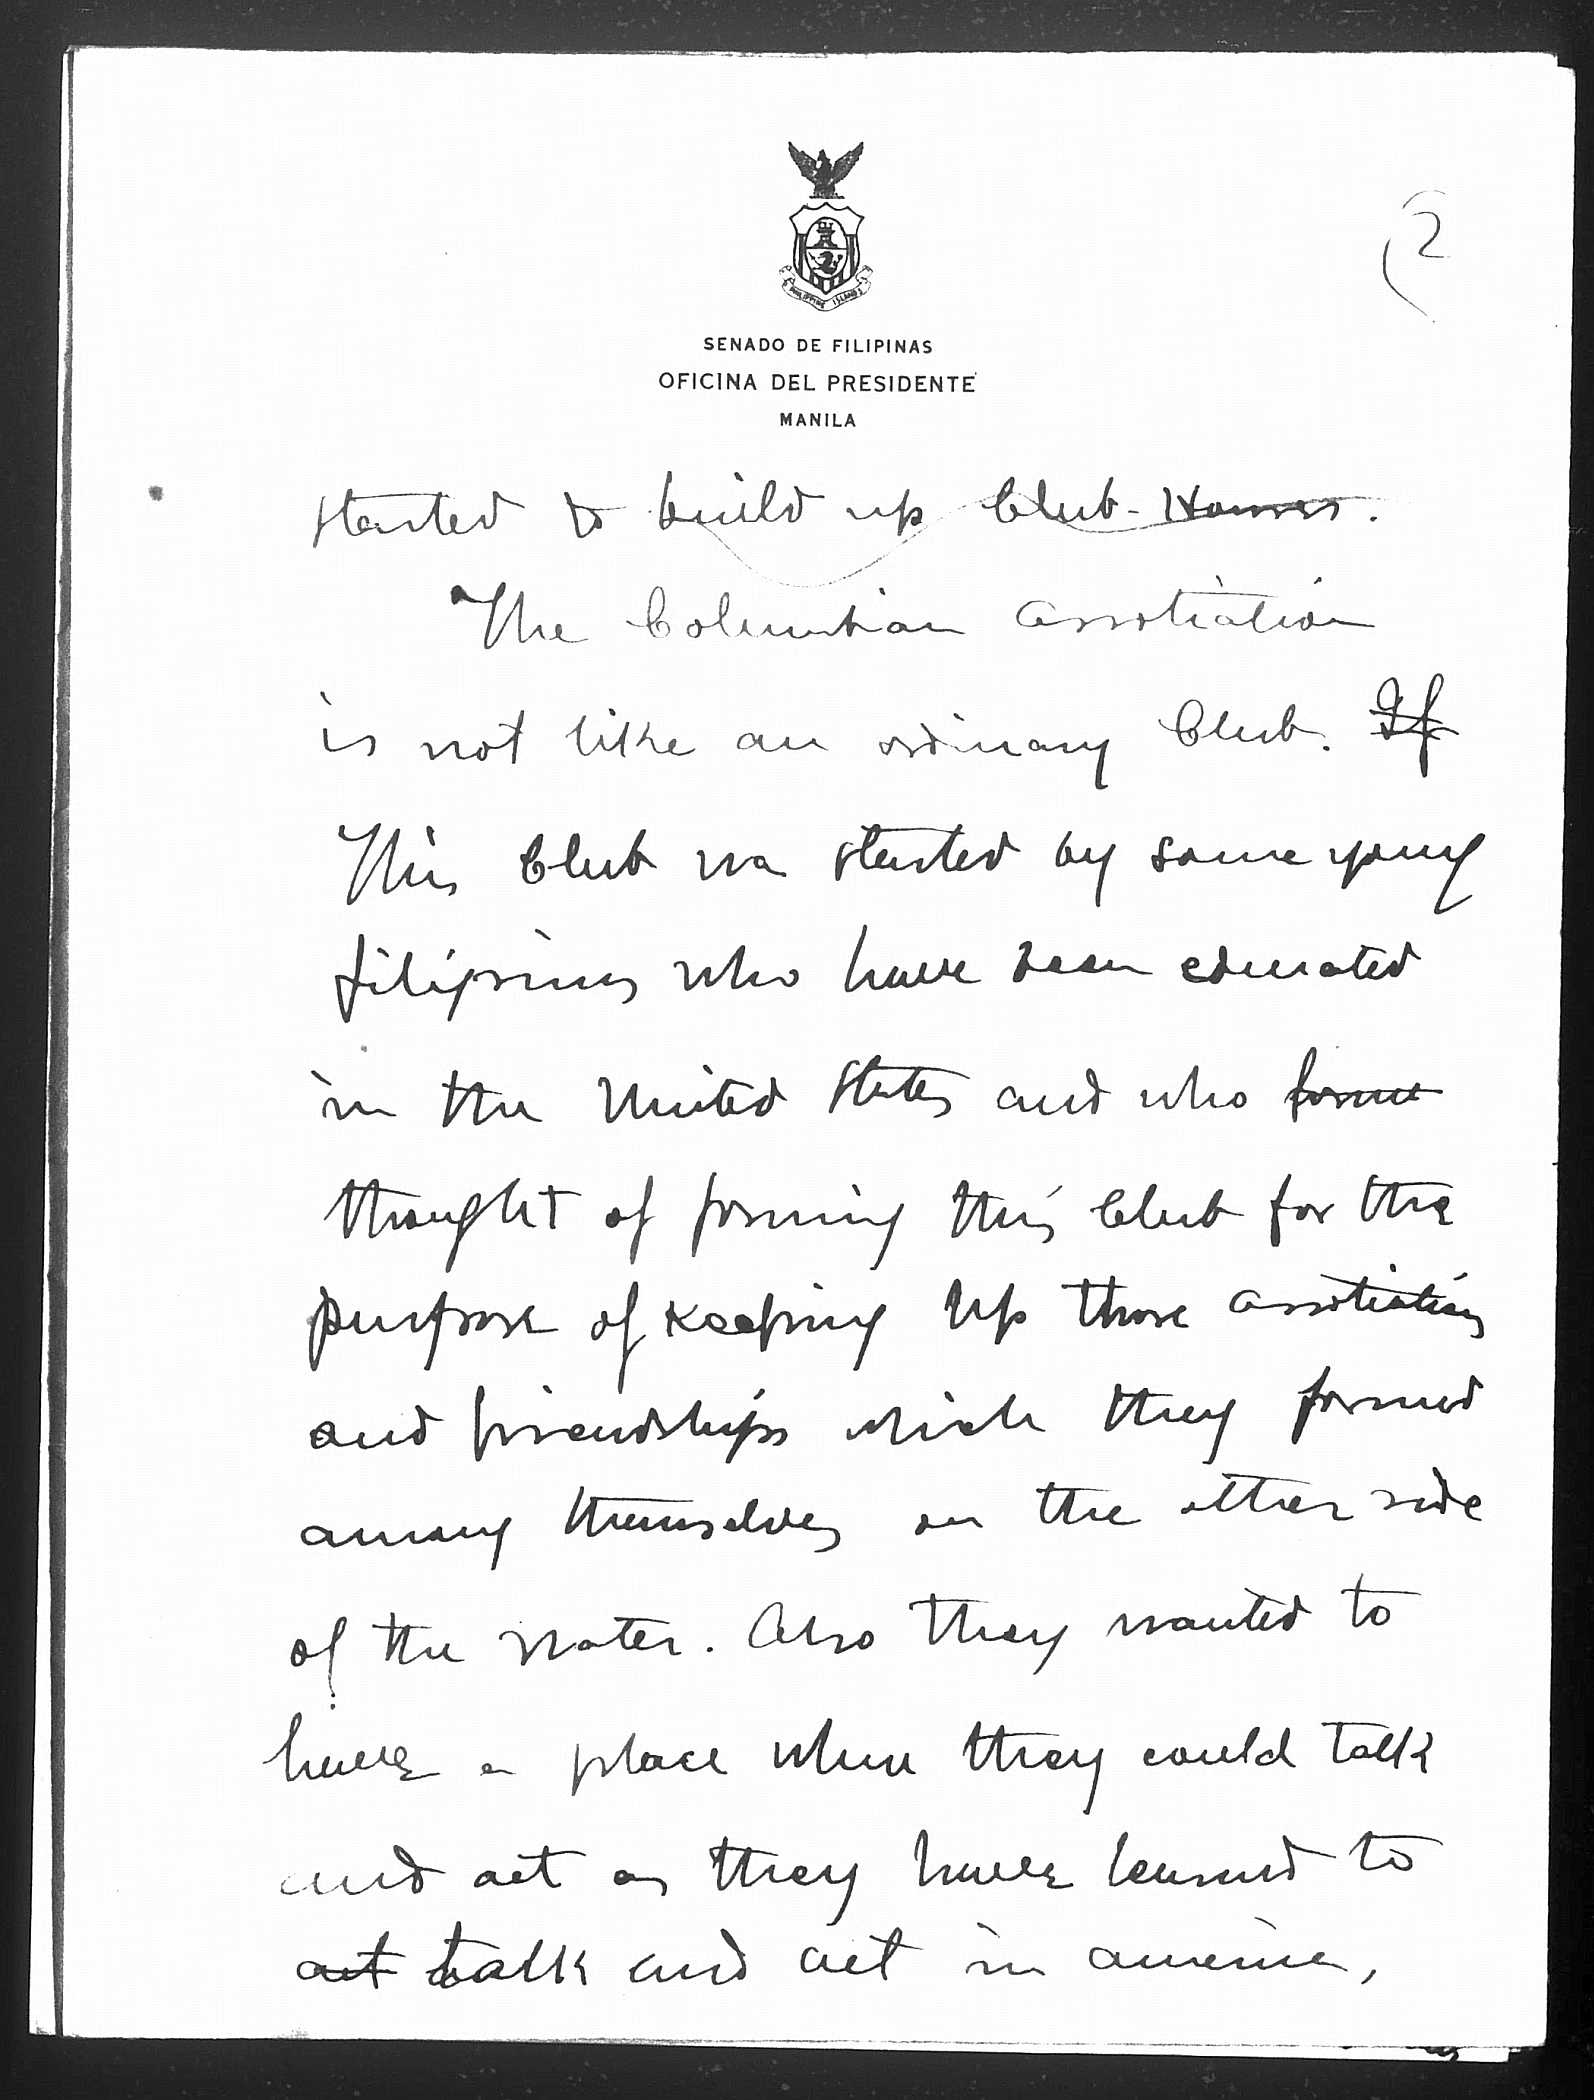 PHILIPPINE ISLANDS
2
SENADO DE FILIPINAS
OFICINA DEL PRESIDENTE
MANILA
started to build up Club-Houses.
The Columbian Assotiation
is not like an ordinary Club. If
This Club wa started by some young
filipinos who have been educated
in the United States and who
thought of forming this Club for the
purpose of keeping up those assotiations
and friendships which they formed
among themselves on the other side
of the water. Also they wanted to
have a place where they could talk
and act as they have learned to
act talk and act in America,